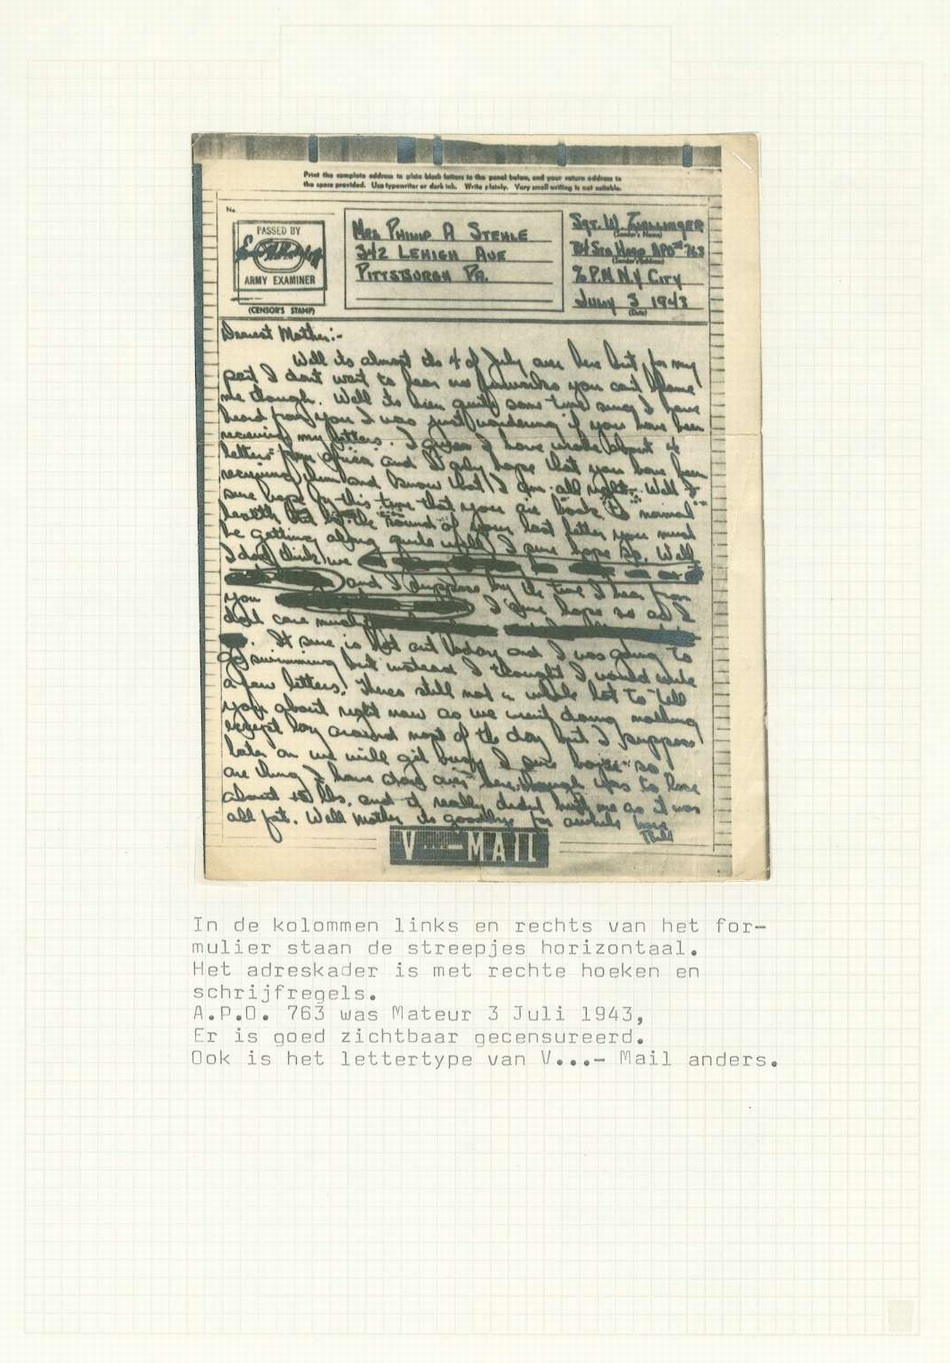 Print the complete address in plain block letters in the panel below, and your return address in
the space provided. Use typewriter or dark ink. Write plainly. Very small writing is not suitable.
No.
PASSED BY
ARMY EXAMINER
(CENSOR'S STAMP)
Mrs Philip A Stehle
342 Lehigh Ave
Pittsburgh Pa.
Sgt. W.
(Sender's Name)
Hosp APO 763
(Sender's Address)
% P.M. N.Y City
July 3 1943
(Date)
Dearest Mother:-
Well its almost the 4 of July over here but for my
part I dont want to hear no fireworks you cant blame
me though. Well its been quite some time since I have
heard from you I was just wondering if you have been
receiving my letters. I guess I have wrote about 4
letters from Africa and I only hope that you have been
receiving them and know that I am all right. Well I
sure hope by this time that you are back to normal
health but by the sound of your last letter you must
be getting along quite well, I sure hope so. Well
I dont think we
and I suppose by the time I hear from
you I sure hope so as I
dont care much
. It sure is hot out today and I was going to
go swimming but instead I thought I would write
a few letters. Theres still not a whole lot to tell
you about right now as we arent doing nothing
except lay around most of the day but I suppose
later on we will get busy I sure hope so
one thing I have done over here though was to lose
about 15 lbs. and it really didnt hurt me as it was
all fat. Well Mother its goodbye for awhile Love
V...-MAIL
In de kolommen links en rechts van het for-
mulier staan de streepjes horizontaal.
Het adreskader is met rechte hoeken en
schrijfregels.
A.P.O. 763 was Mateur 3 Juli 1943,
Er is goed zichtbaar gecensureerd.
Ook is het lettertype van V...- Mail anders.